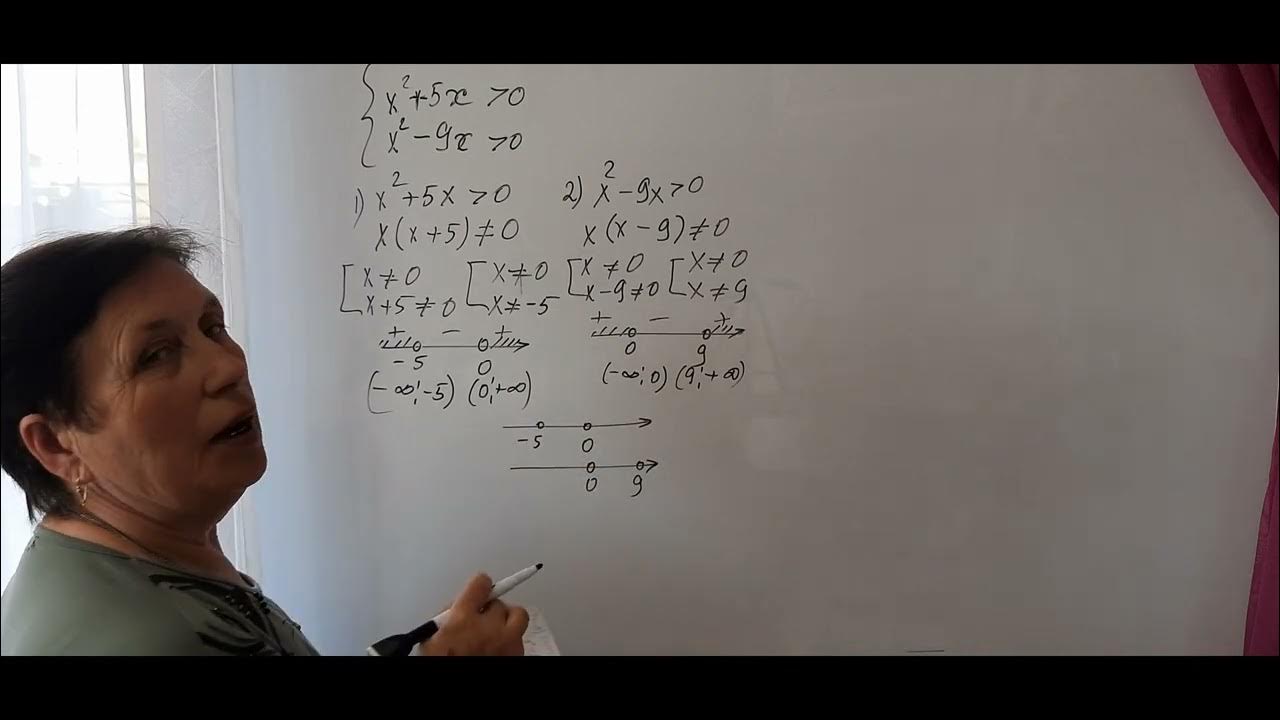 { x² + 5x > 0
x² - 9x > 0
1) x² + 5x > 0
x(x + 5) ≠ 0
[ x ≠ 0 [ x ≠ 0
x + 5 ≠ 0 x ≠ -5
+ - +
-5 0
(-∞; -5) (0; +∞)
2) x² - 9x > 0
x(x - 9) ≠ 0
[ x ≠ 0 [ x ≠ 0
x - 9 ≠ 0 x ≠ 9
+ - +
0 9
(-∞; 0) (9; +∞)
-5 0
0 9